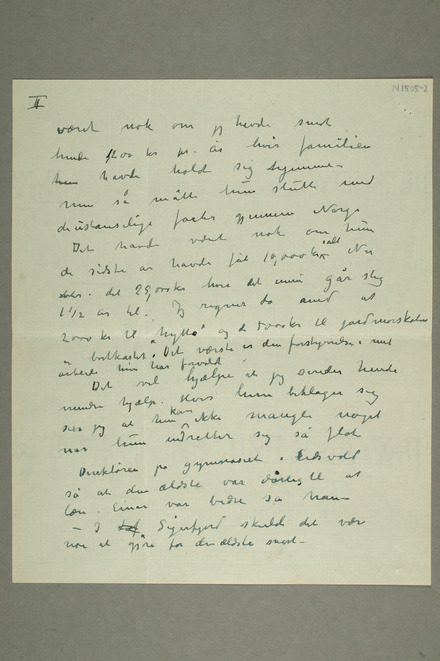 II
N1505-2
været nok om jeg havde sendt
hende 1200 kr pr. år hvis familien
havde hold sig hjemme –
men så måtte hun slutte med
de ustanselige farter gjennem Norge
Det havde været nok om hun
de sidste år havde fåt 10,000 kr ialt Nu
det 25,000 kr bare det når går slig
1½ år til. Jeg regner da med at
2000 kr til "hytte" og 2 000 kr til jordmorskolen
er bortkastet. Det værste er den forstyrrelse i mit
arbeide hun har forvoldt
Det vil hjælpe at jeg sender hende
mindre hjælp. Hvis hun beklager sig
sier jeg at hun kan ikke mangle noget
når hun indretter sig så flot
Direktören på gymnasiet i Eidsvold
så at den ældste var dårlig til at
lære. Einar var bedre sa han –
– I Sigerfjord skulde det være
noe at gjøre for den ældste snart –